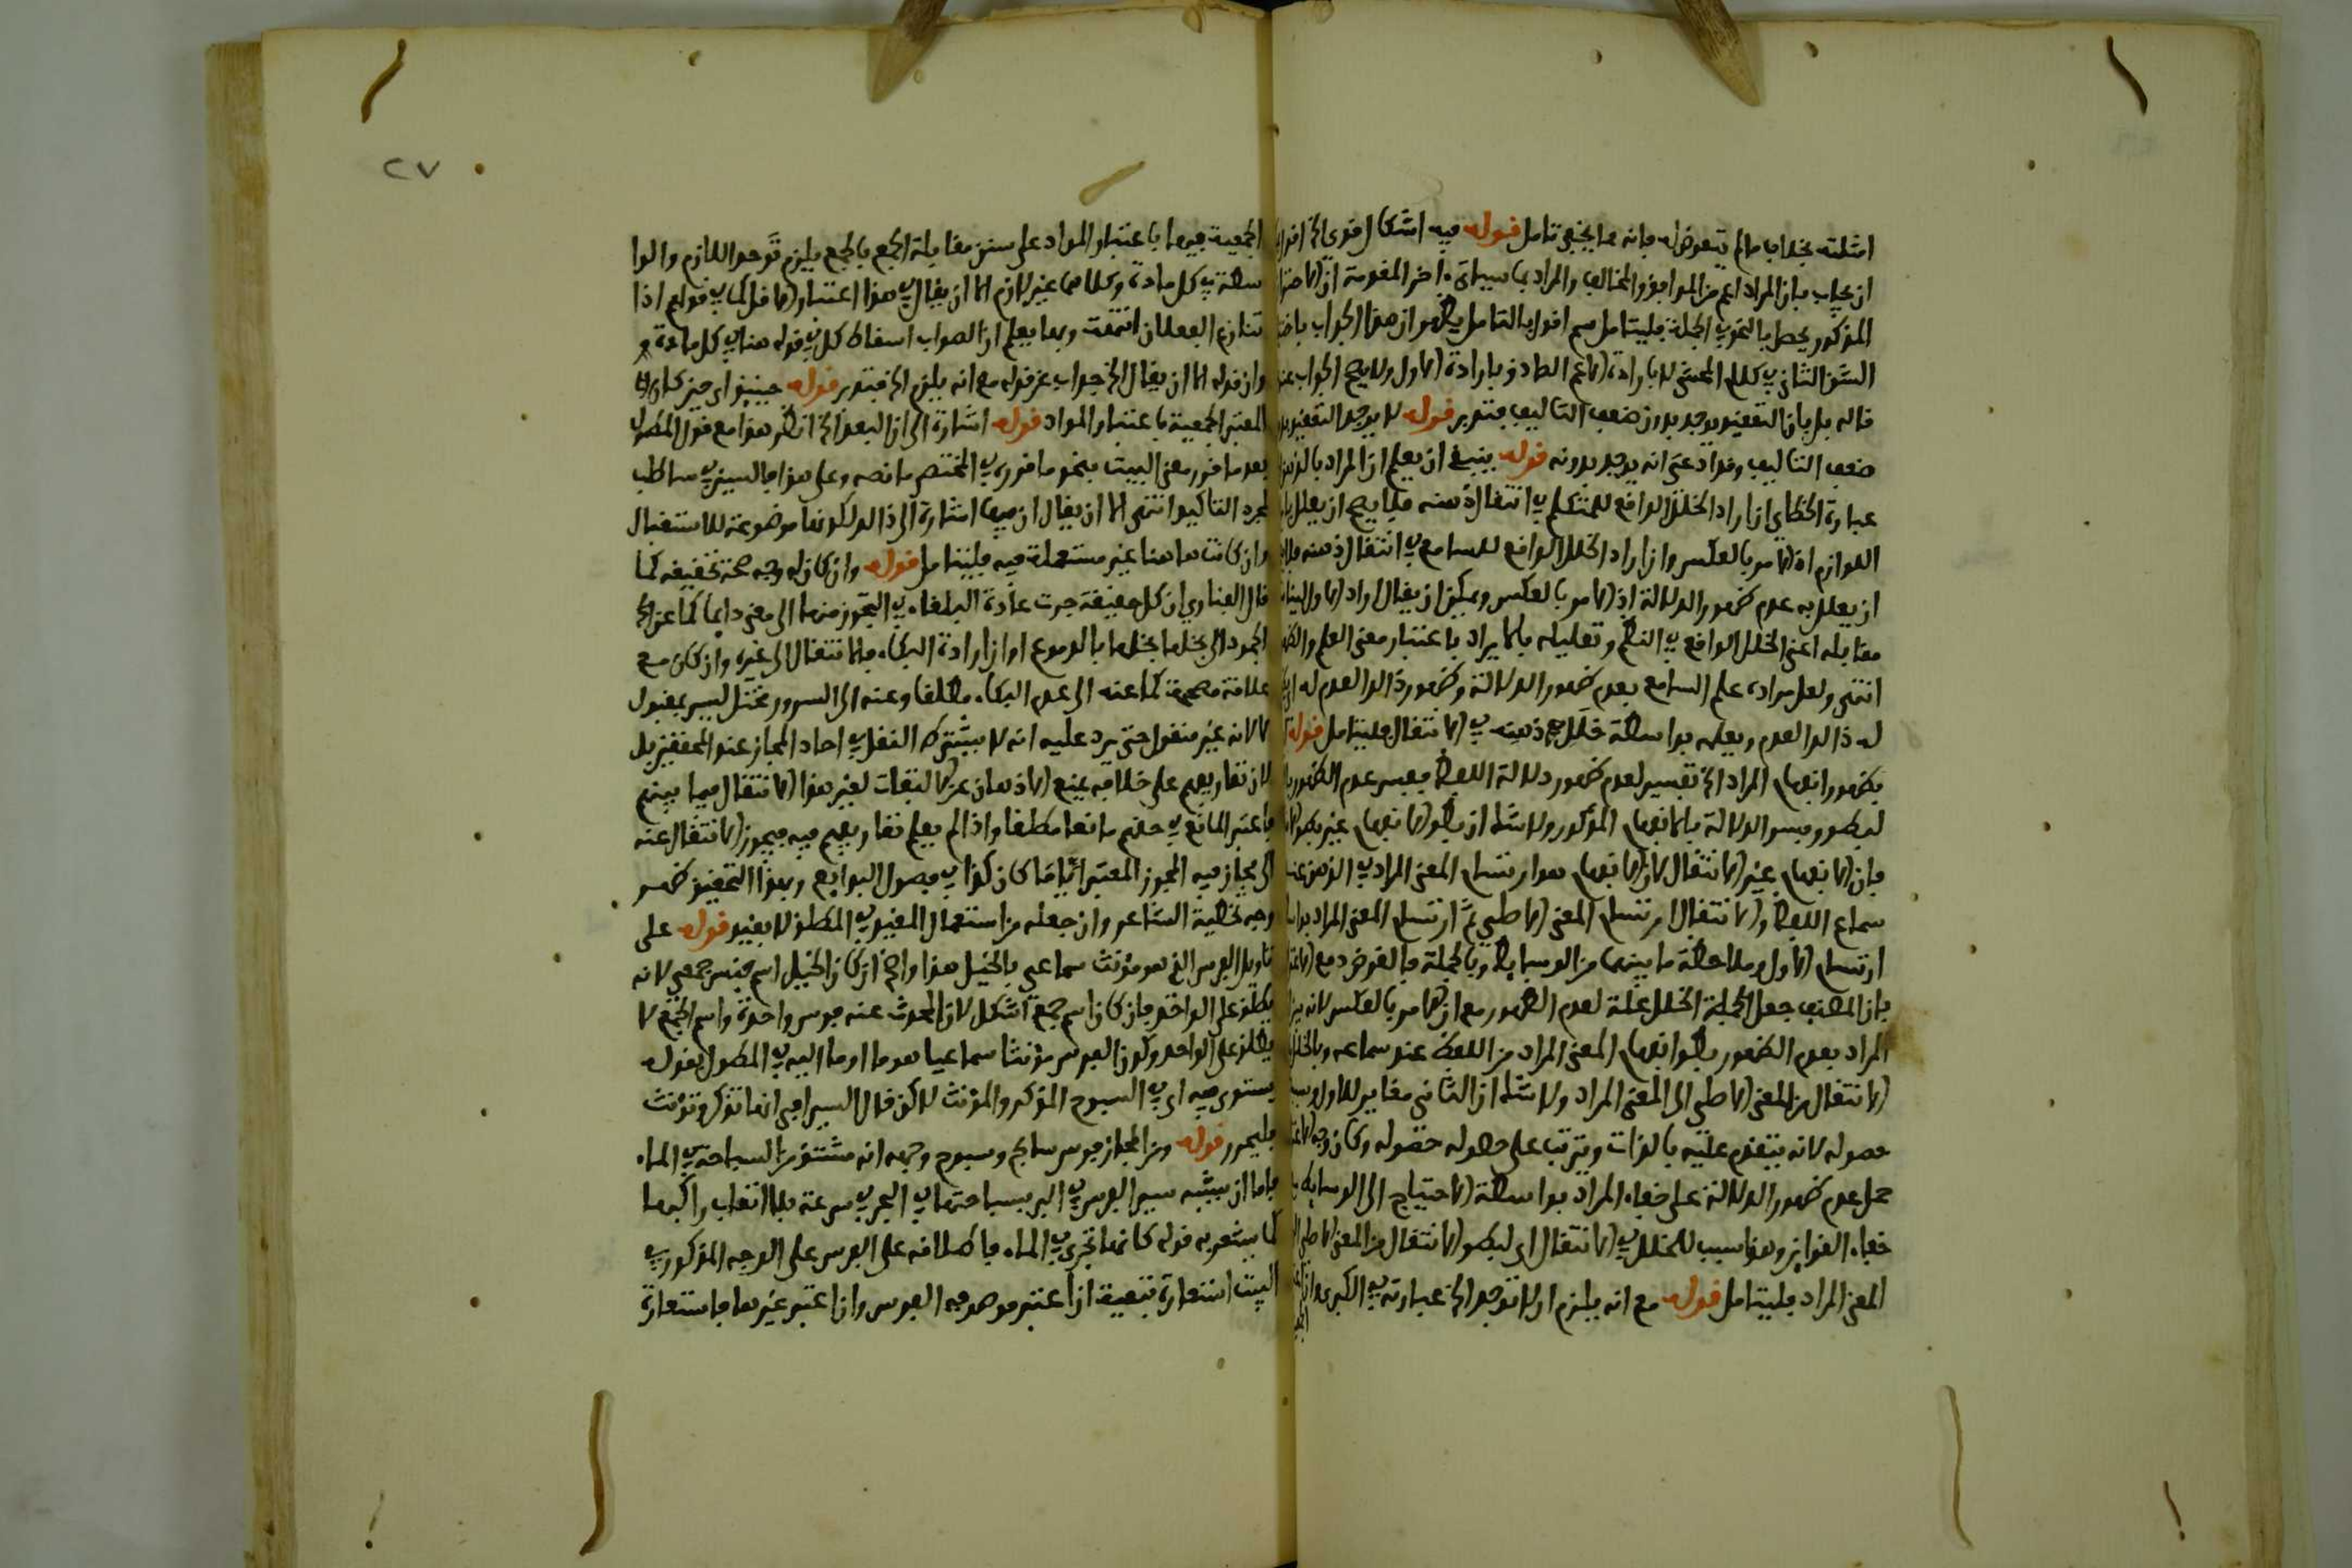 امثلته بخلاف ما لم يتعرض له فانه مما يخفى تامل قوله فيه اشكال قوي الخ اقول
ان يجاب بان المراد اعم من الموافق والمخالف والمراد بما سياتي اخر المقدمة ان
المذكور يحصل بالنحو في الجملة فليتامل ثم اقول بالتامل يظهر ان هذا الجواب
الشق الثاني في كلام المحشي لا بارادة الاعم الصادق بارادة الاول ولا يصح الجواب
قاله بل بان التعقيد يوجد بدون ضعف التاليف فتدبر قوله لا يوجد التعقيد
ضعف التاليف وقد ادعى انه يوجد بدونه قوله ينبغي ان يعلم ان المراد بالذهن
عبارة الخطابي ان اراد الخلل الواقع للمتكلم في انتقال ذهنه فلا يصح ان يعلل
اللوازم اذ الامر بالعكس وان اراد الخلل الواقع للسامع في انتقال ذهنه
ان يعلل به عدم ظهور الدلالة اذ الامر بالعكس ويمكن ان يقال اراد الاول
مقابله اعني الخلل الواقع في النظم وتعليله بالايراد باعتبار معنى العلم
انتهى ولعل مراده علم السامع بعدم ظهور الدلالة وظهور ذا العدم له
له ذا العدم ويعلمه بواسطة خلل في ذهنه في الانتقال فليتامل قوله
بظهور انفهام المراد الخ تفسير لعدم ظهور دلالة اللفظ ففسر عدم الظهور
لبطء وفسر الدلالة بالانفهام المذكور ولا شك ان بطء الانفهام غير بطء
فان الانفهام غير الانتقال لان الانفهام هو ارتسام المعنى المراد في الذهن عند
سماع اللفظ والانتقال ارتسام المعنى الاصلي ثم ارتسام المعنى المراد
ارتسام الاول وملاحظة ما بينهما من الوسايط وبالجملة فالغرض دفع
بان المصنف جعل الجملة الخلل علة لعدم الظهور مع ان الامر بالعكس لانه
المراد بعدم الظهور بطء انفهام المعنى المراد من اللفظ عند سماعه وبالخلل
الانتقال من المعنى الاصلي الى المعنى المراد ولا شك ان الثاني مغاير للاول
حصوله لانه يتقدم عليه بالذات ويترتب على حصوله حصوله وكان وجه
حمل عدم ظهور الدلالة على خفاء المراد بواسطة الاحتياج الى الوسايط
خفاء القراين وهذا سبب للخلل في الانتقال اي لبطء الانتقال من المعنى الاصلي
المعنى المراد فليتامل قوله مع انه يلزم ان لا توجد الخ عبارته في الكبرى
٢٧
الجمعية فيها باعتبار المواد على سنن مقابلة الجمع بالجمع فيلزم توحد اللازم والوا
سطة في كل مادة وكلاهما غير لازم الا ان يقال في هذا اعتبار الاقل كما في قولهم اذا
تنازع الفعلان انتهت وبها يعلم ان الصواب اسقاط كل في قوله هنا في كل مادة
وان قوله الا ان يقال الخ جواب عن قوله مع انه يلزم الخ فتدبر قوله حينئذ اي حين
المعتبر الجمعية باعتبار المواد قوله اشارة الى ان البعد الخ انظر هذا مع قول المطول
بعد ما قرر معنى البيت بنحو ما قرره في المختصر ما نصه وعلى هذا فالسين في ساطلب
لمجرد التاكيد انتهى الا ان يقال ان فيها اشارة الى ذا لكونها موضوعة للاستقبال
وان كانت هاهنا غير مستعملة فيه فليتامل قوله وان كان له وجه صحة تحقيقه كما
قال الفناري ان كل حقيقة جرت عادة البلغاء في التجوز منها الى معنى دايما كما عن
الجمود الى بخلها بالدموع اوان ارادة البكاء فالانتقال الى غيره وان كان مع
علاقة مصححة كما عنه الى عدم البكاء مطلقا وعنه الى السرور مختل ليس بمقبول
لا لانه غير منقول حتى يرد عليه انه لا يشترط النقل في احاد المجاز عند المحققين بل
لان تقاريعهم على خلافه يمنع الاذهان عن الالتفات لغير هذا الانتقال فيما بينهم
فاعتبر المانع في حقهم مانعا مطلقا واذا لم يعلم تقاريعهم فيه فيجوز الانتقال عنه
الى مجاز فيه المجوز المعتبر اياما كان كذا في فصول البدايع وبهذا التحقيق ظهر
وجه تخطية الشاعر وان جعله من استعمال المقيد في المطلق لا يفيد قوله على
تاويل الفرس الذي هو مؤنث سماعي بالخيل هذا واضح ان كان الخيل اسم جنس جمعي لانه
يطلق على الواحد فان كان اسم جمع اشكل لان المحدث عنه فرس واحدة واسم الجمع لا
يطلق على الواحد وكون الفرس مؤنثا سماعيا هو ما اوما اليه في المطول بقوله
يستوي فيه اي في السبوح المذكر والمؤنث لاكن قال السيرافي انها تذكر وتؤنث
فليحرر قوله ومن المجاز فرس سابح وسبوح وجهه انه مشتق من السباحة في الماء
فاما ان يشبه سير الفرس في البر بسباحتها في البحر في سرعة بلا اتعاب راكبها
كما يشعر به قوله كانها تجري في الماء فاطلاقه على الفرس على الوجه المذكور في
البيت استعارة تبعية ان اعتبر موصوفه الفرس وان اعتبر غيرها فاستعارة